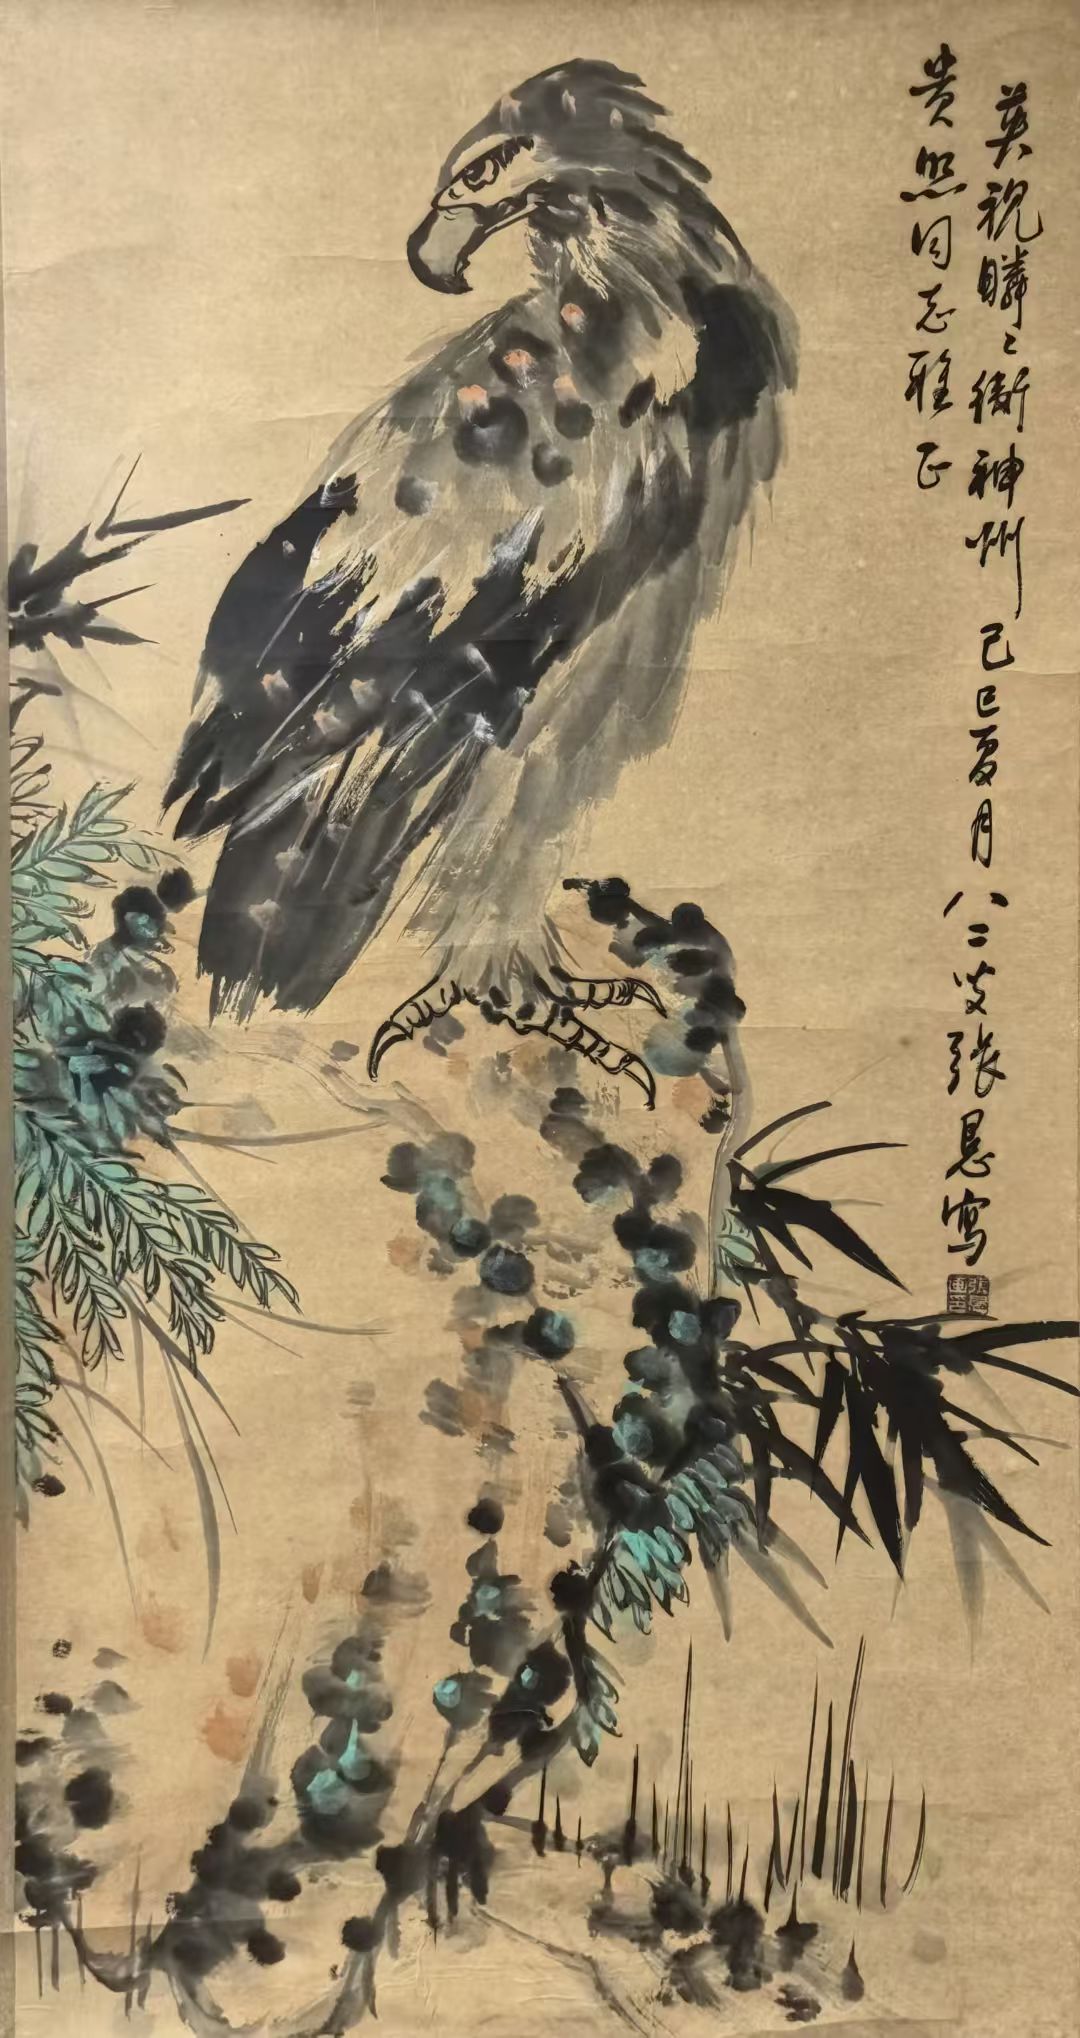 英视瞵〻衛神州 己巳夏月八二叟張恳寫
贵照同志雅正